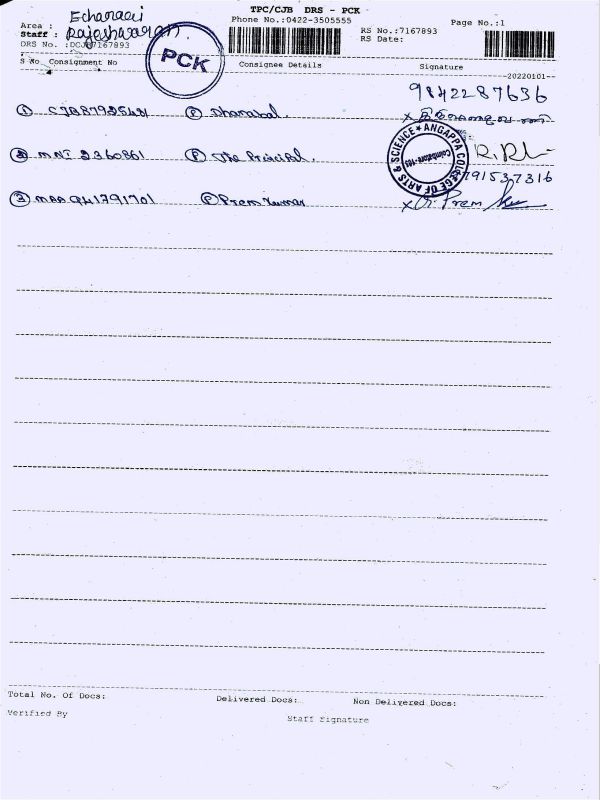 TPC/CJB DRS - PCK
Phone No.:0422-3505555
Page No.:1
Area : Echanari
Staff : Rajeshwaran
DRS No. :DCJB7167893
PCK
RS No.:7167893
RS Date:
S No Consignment No Consignee Details Signature
--20220101--
9842287636
① CJB8792542 Ⓟ Dhanabal.
② MNI 2360861 Ⓟ The Principal.
ANGAPPA COLLEGE OF ARTS & SCIENCE ★
Coimbatore-105
791537316
③ MAA 941791701 Ⓟ Prem Kumar
x Prem
Total No. Of Docs: Delivered Docs: Non Delivered Docs:
Verified By Staff Signature